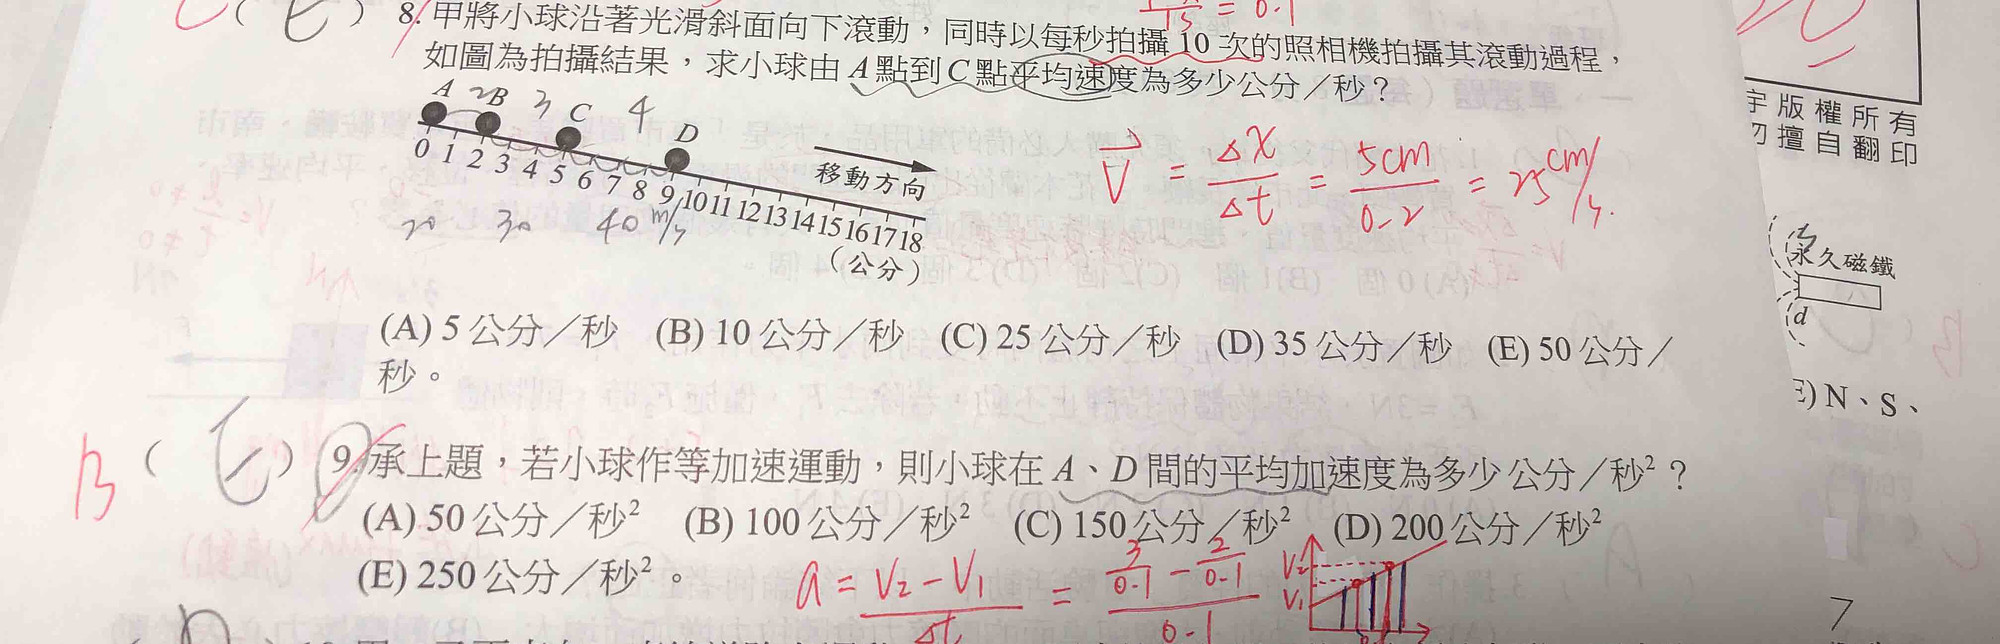 C ( C ) 8. 甲將小球沿著光滑斜面向下滾動，同時以每秒拍攝 10 次的照相機拍攝其滾動過程，
如圖為拍攝結果，求小球由 A 點到 C 點平均速度為多少公分／秒？
A 2 B 3 C 4 D
0 1 2 3 4 5 6 7 8 9 10 11 12 13 14 15 16 17 18
(公分)
移動方向
20 30 40 m/s
V = Δx/Δt = 5cm/0.2 = 25 cm/s.
(A) 5 公分／秒 (B) 10 公分／秒 (C) 25 公分／秒 (D) 35 公分／秒 (E) 50 公分／
秒。
B ( E ) 9. 承上題，若小球作等加速運動，則小球在 A、D 間的平均加速度為多少公分／秒²？
(A) 50 公分／秒² (B) 100 公分／秒² (C) 150 公分／秒² (D) 200 公分／秒²
(E) 250 公分／秒²。
a = V2 - V1 / Δt = 3/0.1 - 2/0.1 / 0.1
V2
V1
版權所有
擅自翻印
永久磁鐵
d
E) N、S、
7